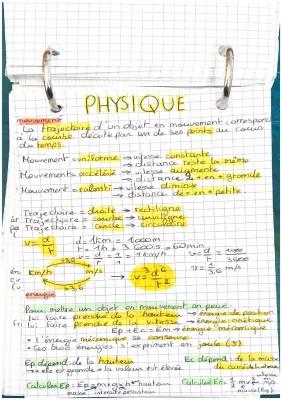 PHYSIQUE
mouvement
La trajectoire d'un objet en mouvement correspond
à la courbe décrite par un de ses points au cours
du temps.
Mouvement = uniforme → vitesse constante
→ distance reste la même
Mouvements = accéléré → vitesse augmente
→ distance de + en + grande
Mouvement = ralenti → vitesse diminue
→ distance de + en + petite
Trajectoire = droite → rectiligne
Trajectoire = courbe → curviligne
Trajectoire = cercle → circulaire
v = d/t d = 1km = 1000m
t = 1h = 3600s = 60min
km/h m/s
÷3,6
×3,6
énergie
Pour mettre un objet en mouvement on peut:
lui faire prendre de la hauteur → énergie de position
lui faire prendre de la vitesse → énergie cinétique
Ep + Ec = Em → énergie mécanique
• L'énergie mécanique se conserve
• Ces trois énergies s'expriment en joule (J)
Ep dépend de la hauteur
→ elle est grande = la valeur est élevée
Ec dépend: de la masse
de la vitesse
Calculer Ep: Ep = m×g×h → hauteur
masse
Calculer Ec = ½ m v²